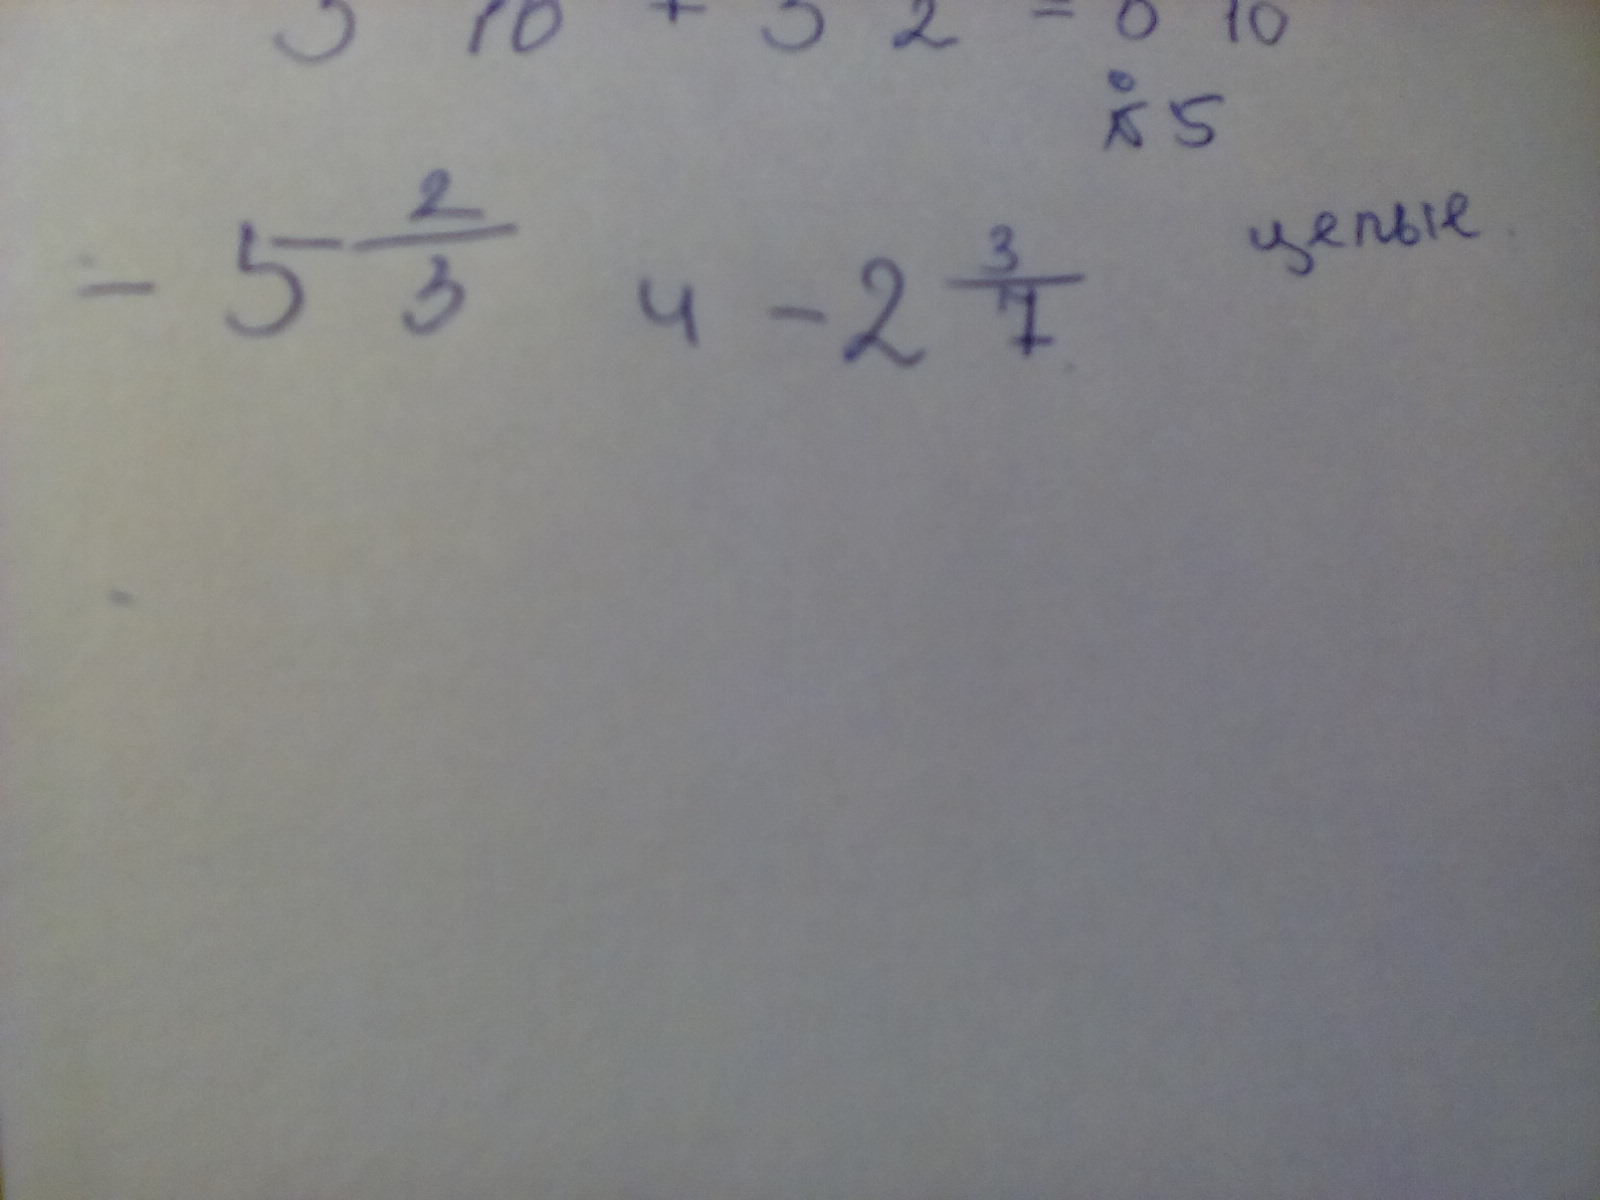 10 + 3 2 = 10
5
- 5 2/3 и - 2 3/7 целые